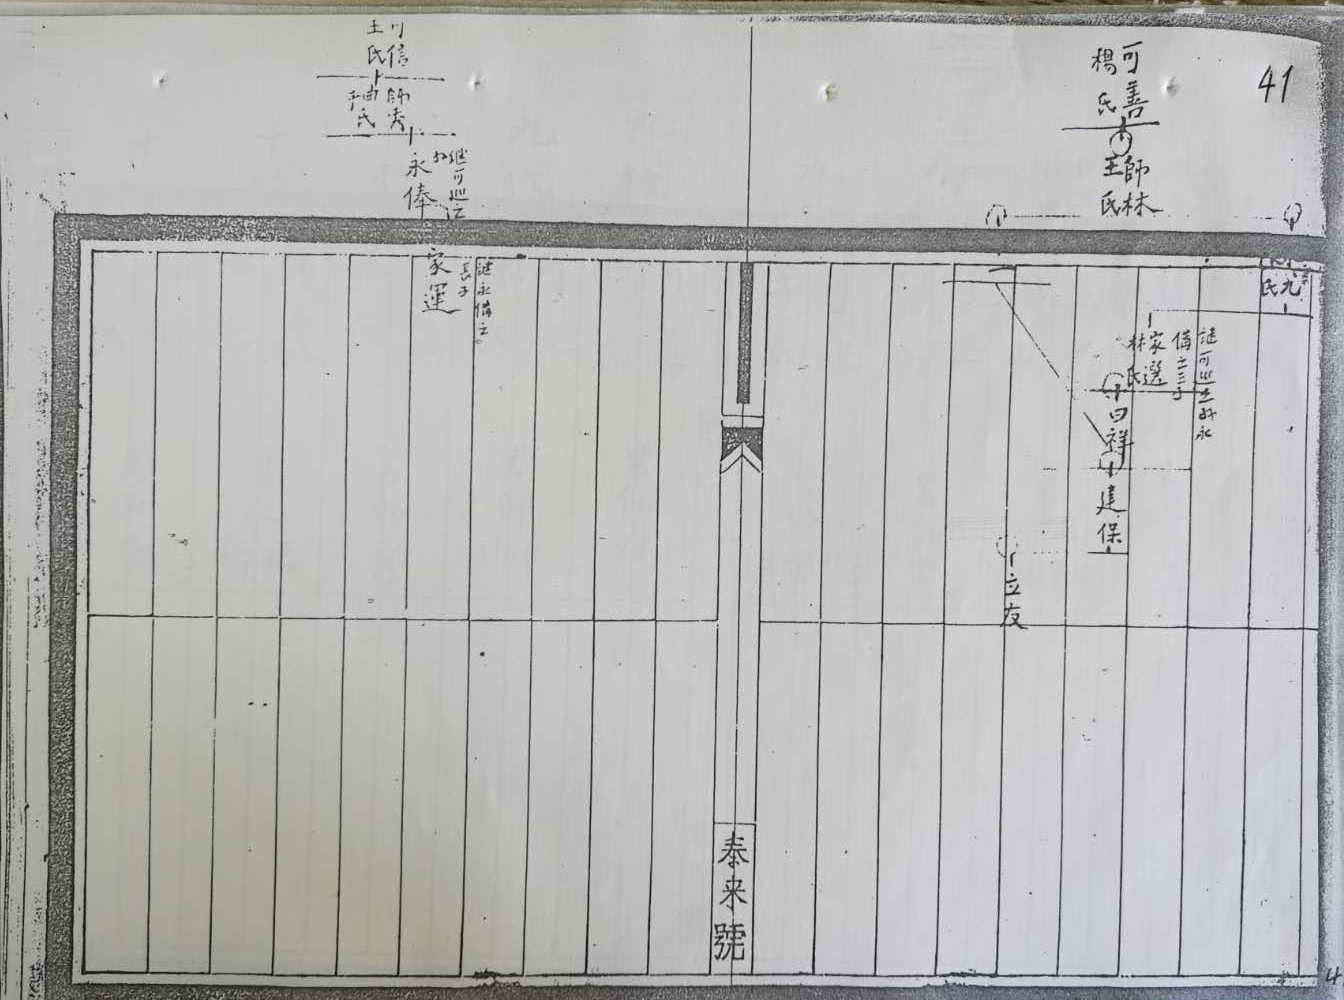 41
可善
楊氏
師林
王氏
九
氏
家選
林氏
繼可巡之孙永
備之三子
曰祥
建保
立友
泰来號
可信
王氏
師秀
氏
永俸
繼可巡之
家運
繼永備之
長子